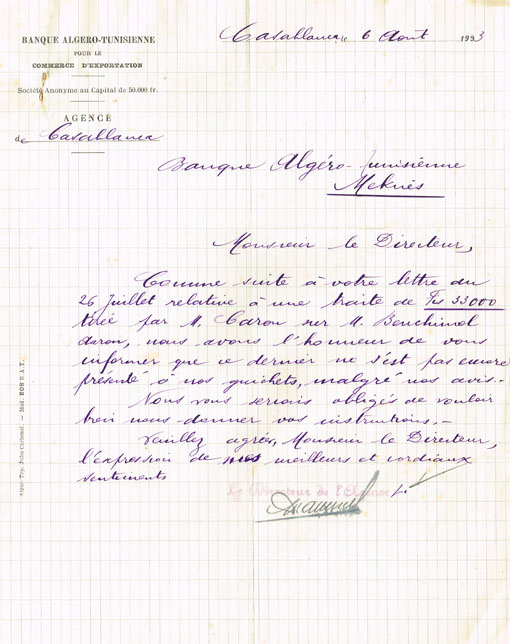 BANQUE ALGERO-TUNISIENNE
POUR LE
COMMERCE D'EXPORTATION
Société Anonyme au Capital de 50.000 fr.
AGENCE
de Casablanca
Casablanca le 6 Août 1933
Banque Algéro-Tunisienne
Meknès
Monsieur le Directeur,
Comme suite à votre lettre du
26 Juillet relative à une traite de Frs 33000
tirée par M. Caron sur M. Bouchimol
Aaron, nous avons l'honneur de vous
informer que ce dernier ne s'est pas encore
présenté à nos guichets, malgré nos avis.-
Nous vous serions obligés de vouloir
bien nous donner vos instructions.-
Veuillez agréer, Monsieur le Directeur,
l'expression de nos meilleurs et cordiaux
sentiments
Le Directeur de l'Agence
Alger Typ. Jules Carbonel. — Mod. 208 A.T.